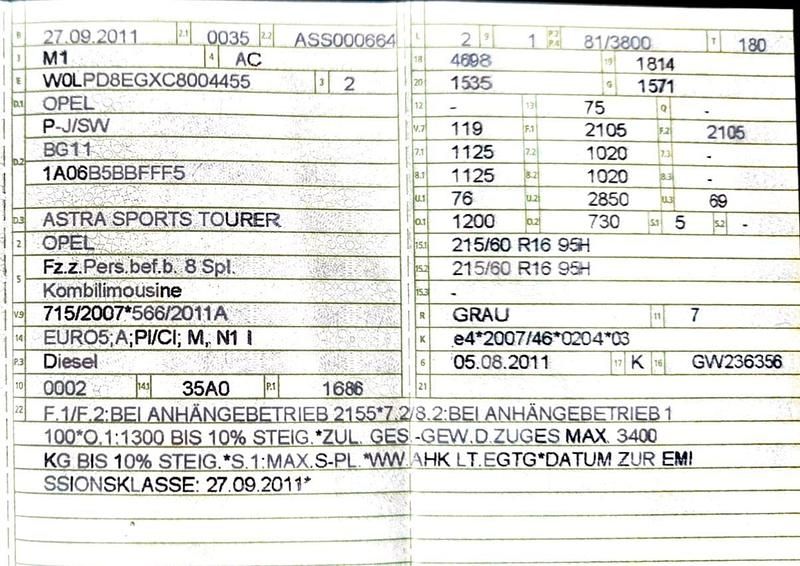 B 27.09.2011 2.1 0035 2.2 ASS000664
J M1 4 AC
E W0LPD8EGXC8004455 3 2
D.1 OPEL
P-J/SW
D.2 BG11
1A06B5BBFFF5
D.3 ASTRA SPORTS TOURER
2 OPEL
5 Fz.z.Pers.bef.b. 8 Spl.
Kombilimousine
V.9 715/2007*566/2011A
14 EURO5;A;PI/CI; M, N1 I
P.3 Diesel
10 0002 14.1 35A0 P.1 1686
L 2 9 1 P.2 P.4 81/3800 T 180
18 4698 19 1814
20 1535 G 1571
12 - 13 75 Q -
V.7 119 F.1 2105 F.2 2105
7.1 1125 7.2 1020 7.3 -
8.1 1125 8.2 1020 8.3 -
U.1 76 U.2 2850 U.3 69
O.1 1200 O.2 730 S.1 5 S.2 -
15.1 215/60 R16 95H
15.2 215/60 R16 95H
15.3 -
R GRAU 11 7
K e4*2007/46*0204*03
6 05.08.2011 17 K 16 GW236356
21
22 F.1/F.2:BEI ANHÄNGEBETRIEB 2155*7.2/8.2:BEI ANHÄNGEBETRIEB 1
100*O.1:1300 BIS 10% STEIG.*ZUL. GES.-GEW.D.ZUGES MAX. 3400
KG BIS 10% STEIG.*S.1:MAX.S-PL.*WW.AHK LT.EGTG*DATUM ZUR EMI
SSIONSKLASSE: 27.09.2011*